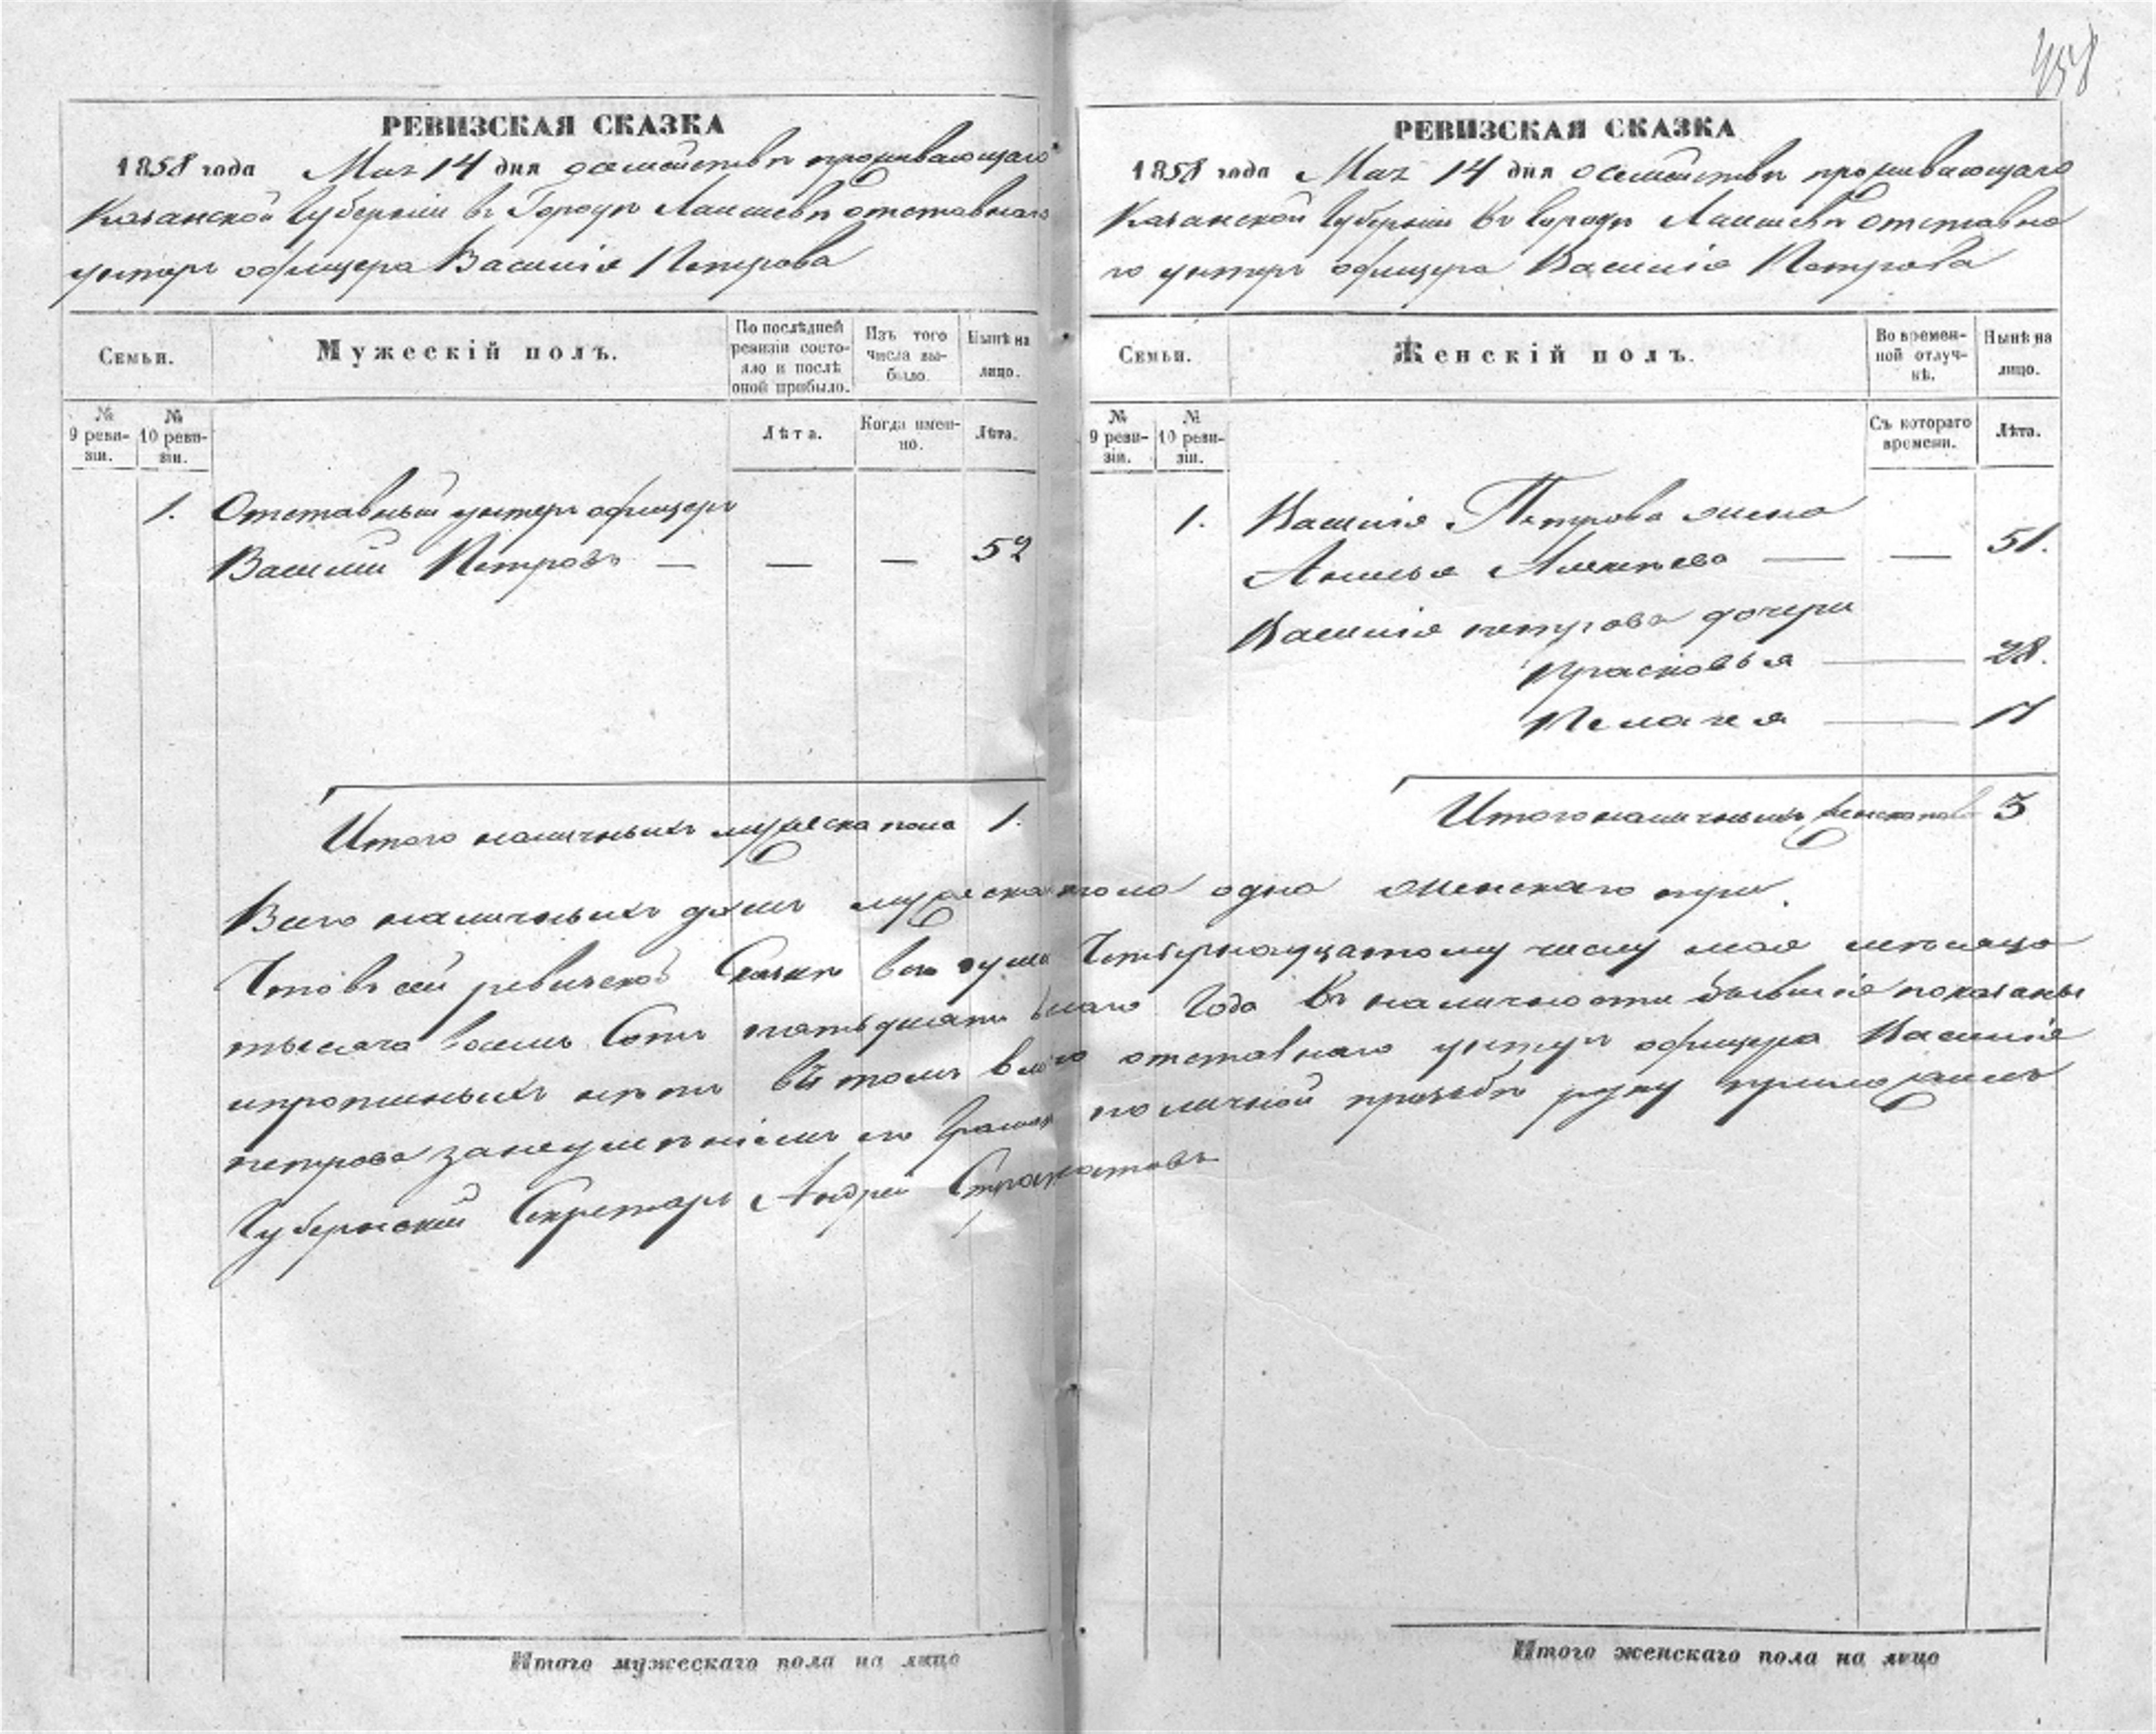 458
РЕВИЗСКАЯ СКАЗКА
1858 года Мая 14 дня осемействѣ проживающаго
Казанской Губерніи въ Городѣ Лаишевѣ отставнаго
унтеръ офицера Василія Петрова
Семьи.
Мужескій полъ.
По послѣдней ревизіи состояло и послѣ оной прибыло.
Изъ того числа выбыло.
Нынѣ на лицо.
№ 9 ревизіи.
№ 10 ревизіи.
Лѣта.
Когда именно.
Лѣта.
1. Отставный унтеръ офицеръ
Василий Петровъ — — — 52
Итого наличныхъ мужеска пола 1.
РЕВИЗСКАЯ СКАЗКА
1858 года Мая 14 дня осемействѣ проживающаго
Казанской Губерніи Въ городѣ Лаишевѣ отставна
го унтеръ офицера Василія Петрова
Семьи.
Женскій полъ.
Во временной отлучкѣ.
Нынѣ на лицо.
№ 9 ревизіи.
№ 10 ревизіи.
Съ котораго времени.
Лѣта.
1. Василія Петрова жена
Алексѣева — — 51.
Василія петрова дочери
Прасковья — 28.
Пелагея — 17
Итого наличныхъ женска пола 3
Всего наличныхъ душъ мужеска пола одна женскаго три.
Что въ сей ревизской Сказкѣ всѣ души Четырнадцатому числу мая мѣсяца
тысяча восемь Сотъ пятьдесятъ года Въ наличности бывшіе показаны
и пропишныхъ нѣтъ въ томъ вмѣсто отставнаго унтеръ офицера Василія
петрова занеумѣніемъ его Грамотѣ поличной прозьбѣ руку приложилъ
Губернский Секретарь Андрей
Итого мужескаго пола на лицо
Итого женскаго пола на лицо